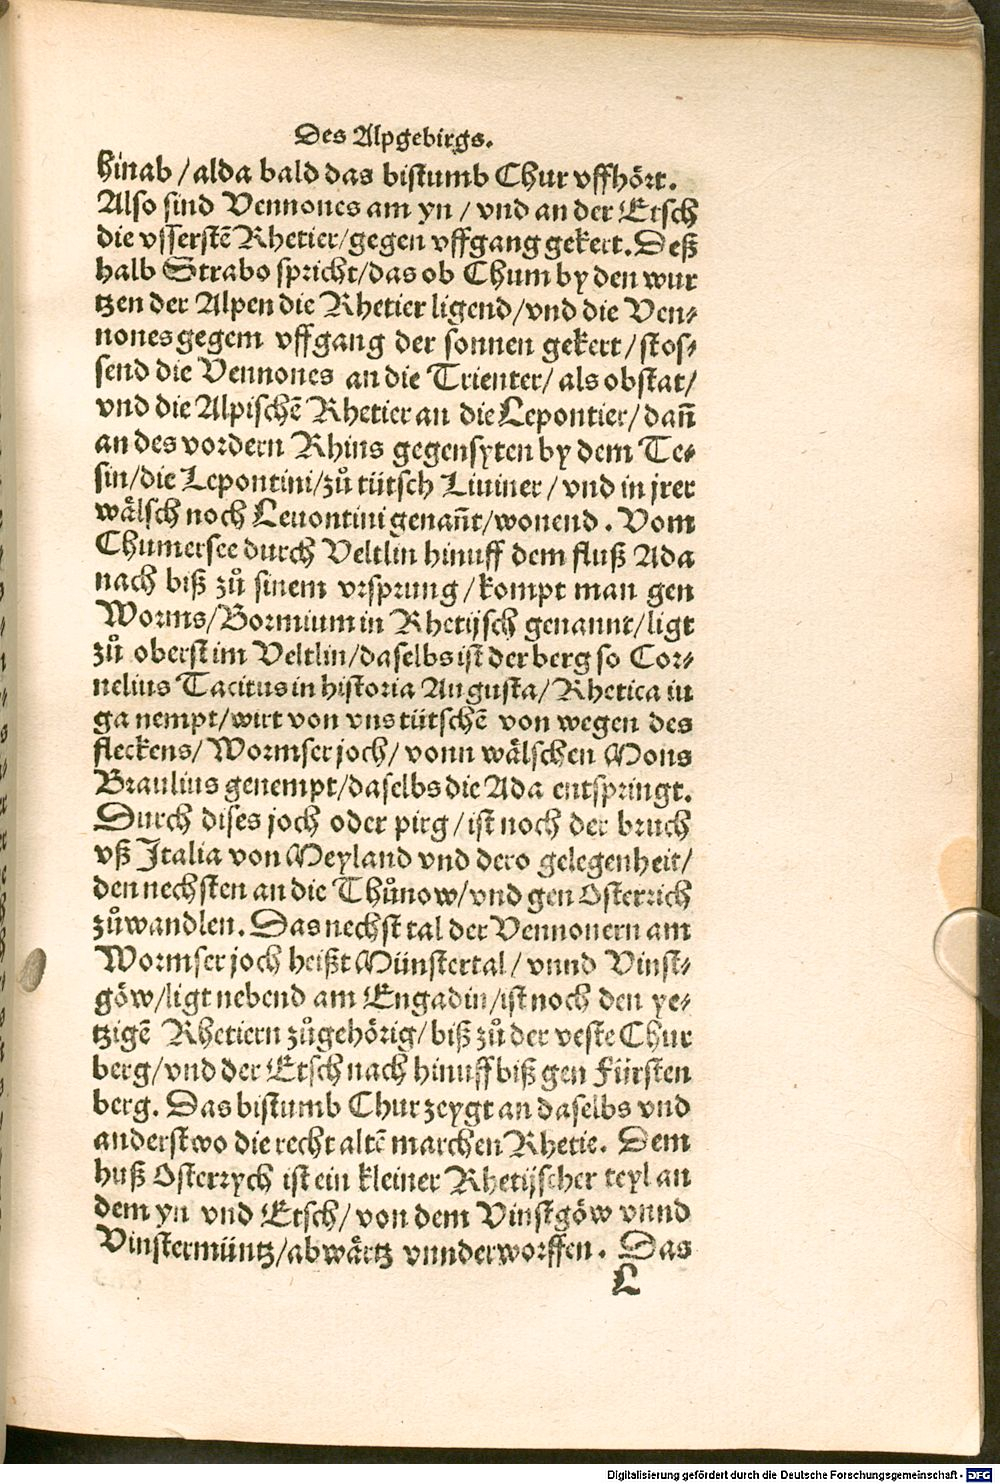 Des Alpgebirgs.
hinab / alda bald das bistumb Chur vffhört.
Also sind Vennones am yn / vnd an der Etsch
die vsserstẽ Rhetier/gegen vffgang gekert. Deß
halb Strabo spricht/das ob Chum by den wur
tzen der Alpen die Rhetier ligend/vnd die Ven⸗
nones gegem vffgang der sonnen gekert / stos⸗
send die Vennones an die Trienter/ als obstat/
vnd die Alpischẽ Rhetier an die Lepontier/ dañ
an des vordern Rhins gegensyten by dem Te⸗
sin/die Lepontini/zů tütsch Liuiner / vnd in jrer
wålsch noch Leuontini genañt/wonend. Vom
Chumersee durch Veltlin hinuff dem fluß Ada
nach biß zů sinem vrsprung / kompt man gen
Worms/Bormium in Rhetijsch genannt/ligt
zů oberst im Veltlin/daselbs ist der berg so Cor⸗
nelius Tacitus in historia Augusta/Rhetica iu
ga nempt/wirt von vns tütschẽ von wegen des
fleckens/ Wormser joch/ vonn wålschen Mons
Braulius genempt/daselbs die Ada entspringt.
Durch dises joch oder pirg / ist noch der bruch
vß Italia von Meyland vnd dero gelegenheit/
den nechsten an die Thůnow/vnd gen Osterrich
zůwandlen. Das nechst tal der Vennonern am
Wormser joch heißt Münstertal / vnnd Vinst⸗
göw/ligt nebend am Engadin/ist noch den ye⸗
tzigẽ Rhetiern zůgehörig/ biß zů der veste Chur
berg/vnd der Etsch nach hinuff biß gen Fürsten
berg. Das bistumb Chur zeygt an daselbs vnd
anderstwo die recht altẽ marchen Rhetie. Dem
huß Osterrych ist ein kleiner Rhetijscher teyl an
dem yn vnd Etsch/ von dem Vinstgöw vnnd
Vinstermüntz/abwårtz vnnderworffen. Das
L
Digitalisierung gefördert durch die Deutsche Forschungsgemeinschaft - DFG